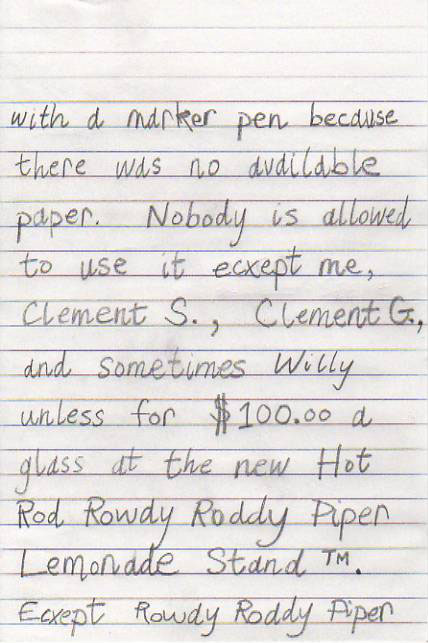 with a marker pen because
there was no available
paper. Nobody is allowed
to use it ecxept me,
Clement S., Clement G.,
and sometimes Willy
unless for $100.00 a
glass at the new Hot
Rod Rowdy Roddy Piper
Lemonade Stand ™.
Ecxept Rowdy Roddy Piper